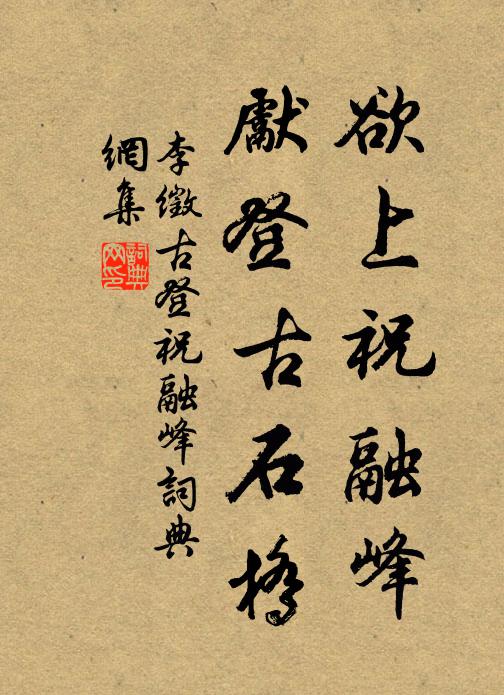 欲上祝融峰
獻登古石橋
李徵古登祝融峰詞典
網集
詞典
网印